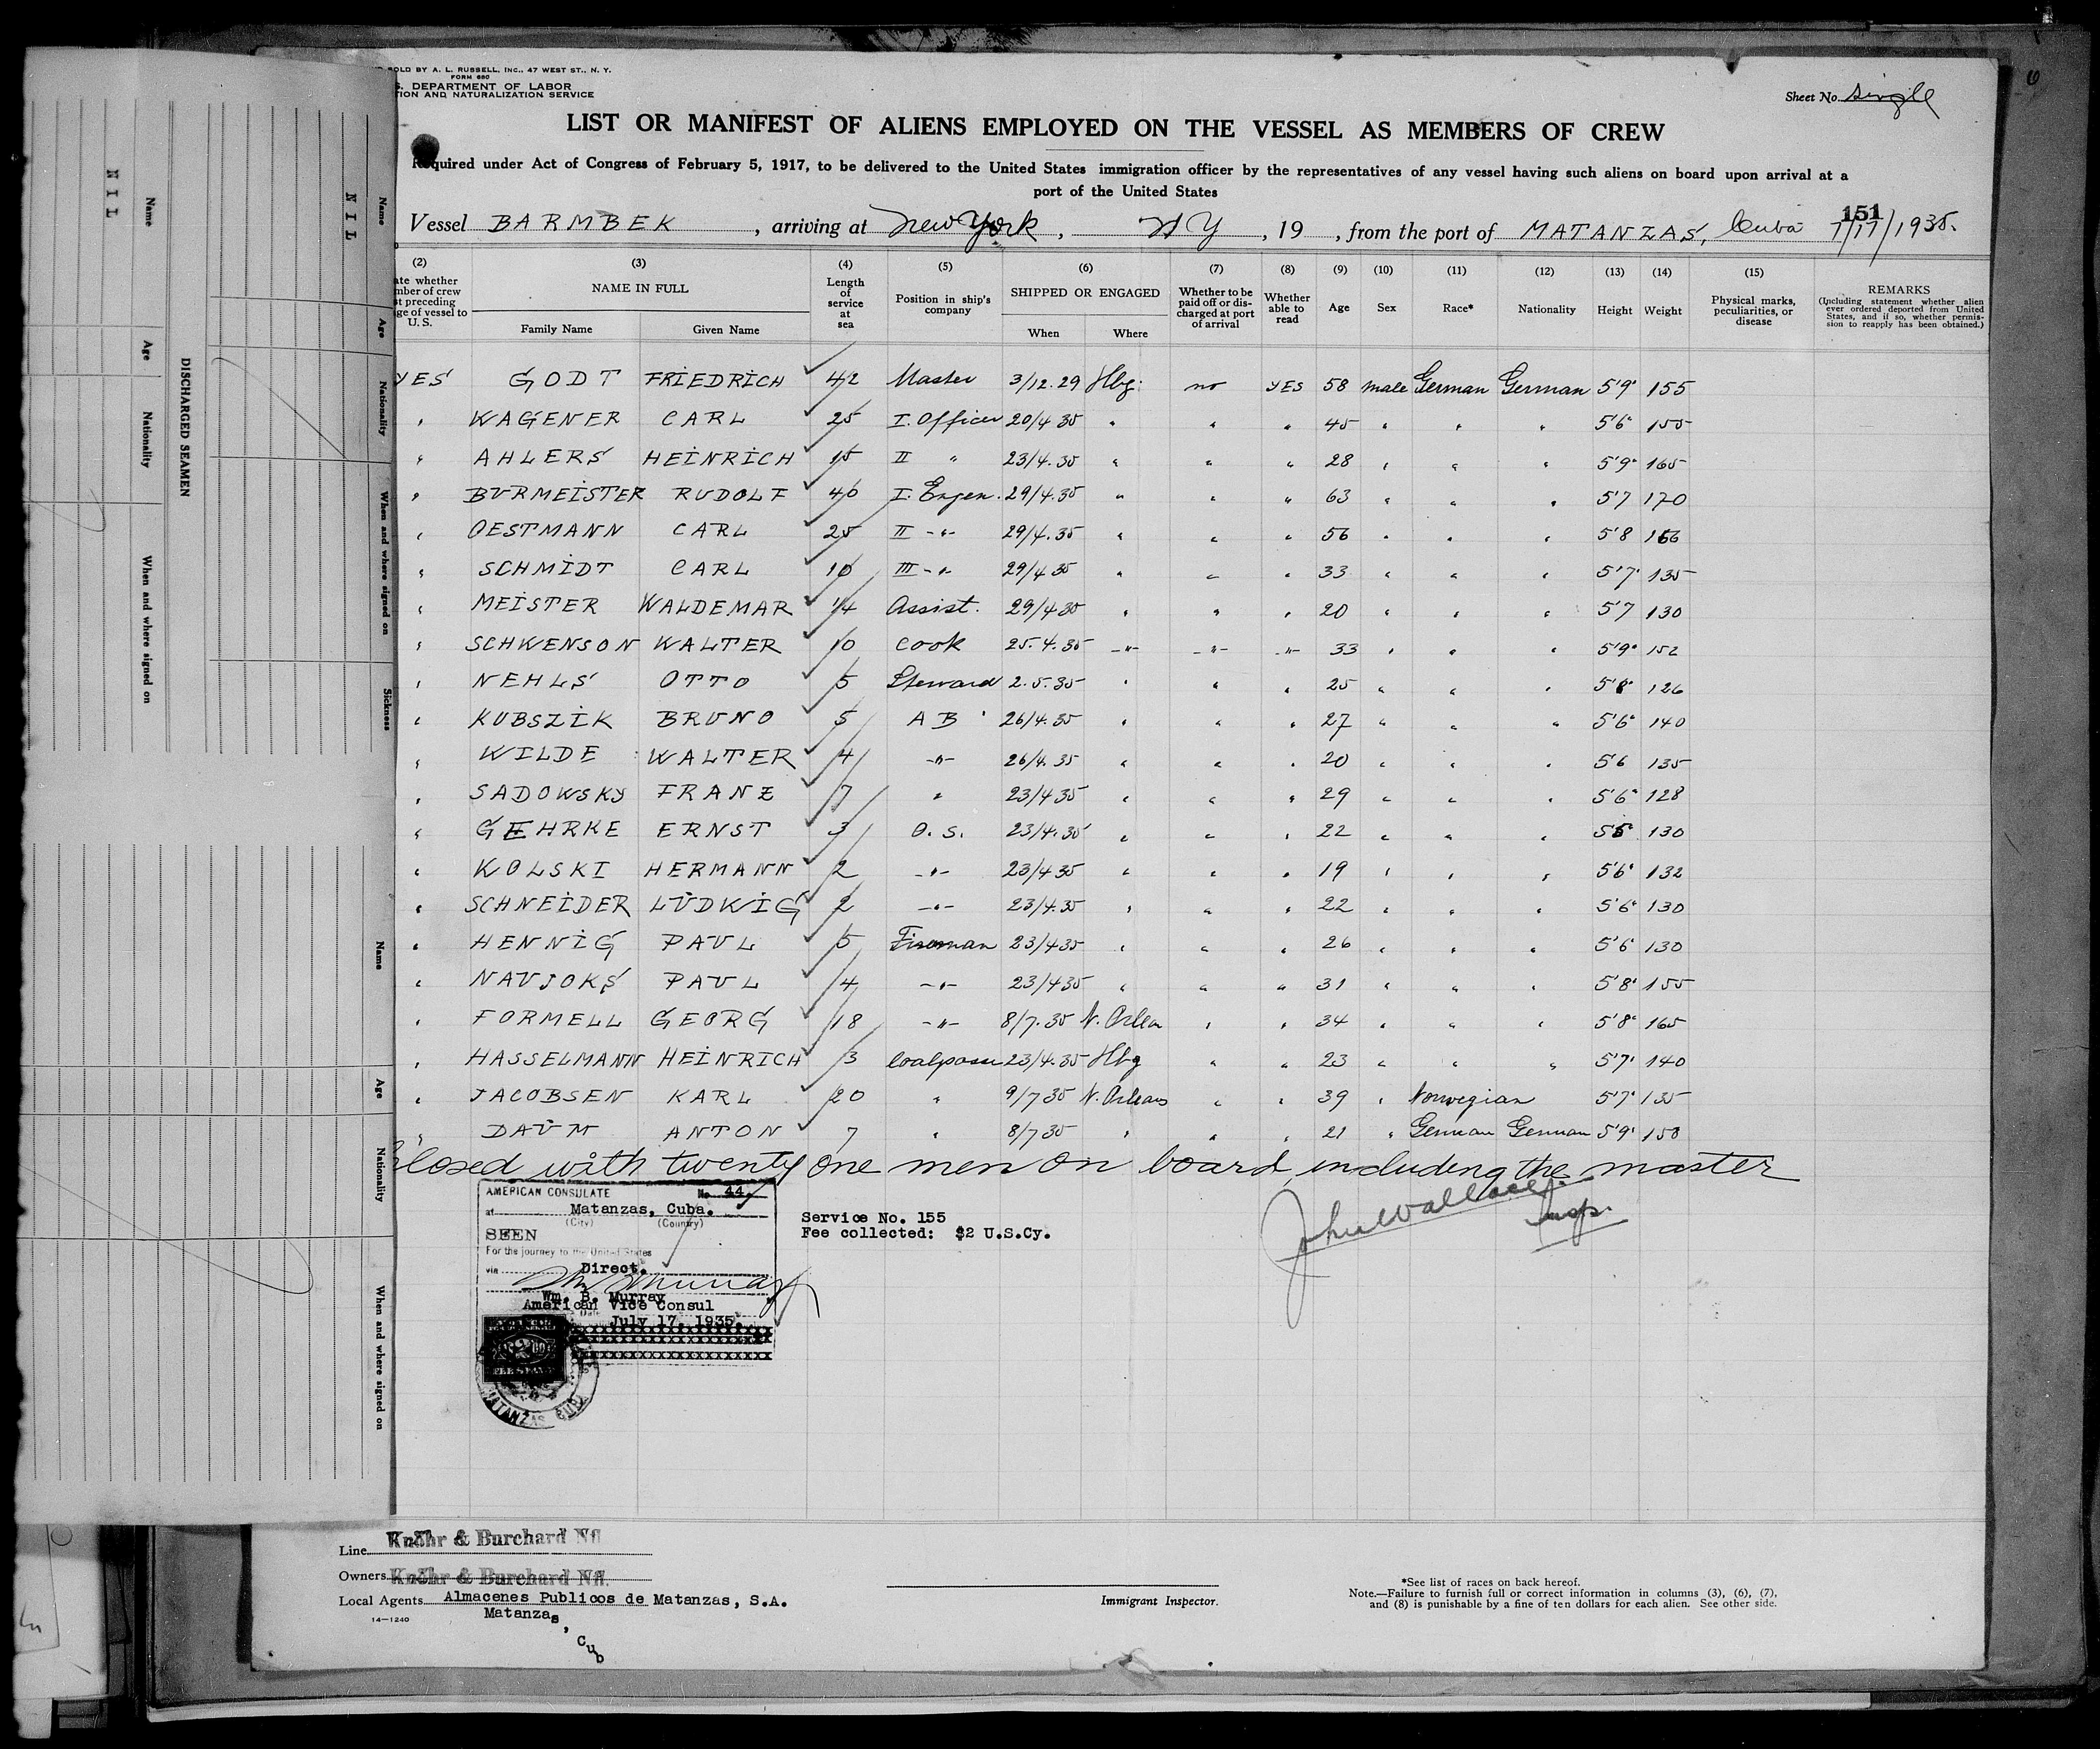 SOLD BY A. L. RUSSELL, INC., 47 WEST ST., N. Y.
FORM 680
S. DEPARTMENT OF LABOR
TION AND NATURALIZATION SERVICE
Sheet No. single
LIST OR MANIFEST OF ALIENS EMPLOYED ON THE VESSEL AS MEMBERS OF CREW
Required under Act of Congress of February 5, 1917, to be delivered to the United States immigration officer by the representatives of any vessel having such aliens on board upon arrival at a
port of the United States
151
Vessel BARMBEK, arriving at New York, NY, 19 , from the port of MATANZAS, Cuba 7/17/1935.
(2) (3) (4) (5) (6) (7) (8) (9) (10) (11) (12) (13) (14) (15)
ate whether mber of crew st preceding ge of vessel to U. S. | NAME IN FULL Family Name Given Name | Length of service at sea | Position in ship's company | SHIPPED OR ENGAGED When Where | Whether to be paid off or dis-charged at port of arrival | Whether able to read | Age | Sex | Race* | Nationality | Height | Weight | Physical marks, peculiarities, or disease | REMARKS (Including statement whether alien ever ordered deported from United States, and if so, whether permis-sion to reapply has been obtained.)
YES GODT FRIEDRICH 42 Master 3/12.29 Hbg. no YES 58 male German German 5'9" 155
" WAGENER CARL 25 I. Officer 20/4 35 " " " 45 " " " 5'6" 155
" AHLERS HEINRICH 15 II " 23/4.35 " " " 28 " " " 5'9" 165
" BURMEISTER RUDOLF 40 I. Engen. 29/4.35 " " " 63 " " " 5'7 170
" OESTMANN CARL 25 II -"- 29/4.35 " " " 56 " " " 5'8 166
" SCHMIDT CARL 10 III -"- 29/4 35 " " " 33 " " " 5'7" 135
" MEISTER WALDEMAR 1/4 Assist. 29/4 35 " " " 20 " " " 5'7 130
" SCHWENSON WALTER 10 Cook 25.4.35 -"- -"- -"- 33 " " " 5'9" 152
" NEHLS OTTO 5 Steward 2.5.35 " " " 25 " " " 5'8" 126
" KUBSZIK BRUNO 5 AB 26/4.35 " " " 27 " " " 5'6" 140
" WILDE WALTER 4 -"- 26/4.35 " " " 20 " " " 5'6 135
" SADOWSKY FRANZ 7 " 23/4 35 " " " 29 " " " 5'6" 128
" GEHRKE ERNST 3 O.S. 23/4.35 " " " 22 " " " 5'5" 130
" KOLSKI HERMANN 2 -"- 23/4 35 " " " 19 " " " 5'6" 132
" SCHNEIDER LUDWIG 2 -"- 23/4.35 " " " 22 " " " 5'6" 130
" HENNIG PAUL 5 Fireman 23/4 35 " " " 26 " " " 5'6" 130
" NAUJOKS PAUL 4 -"- 23/4 35 " " " 31 " " " 5'8" 155
" FORMELL GEORG 18 -"- 8/7.35 N. Orlean " " 34 " " " 5'8" 165
" HASSELMANN HEINRICH 3 Coalpasser 23/4.35 Hbg " " 23 " " " 5'7" 140
" JACOBSEN KARL 20 " 9/7 35 N. Orleans " " 39 " Norwegian 5'7" 135
" DAUM ANTON 7 " 8/7 35 " " " 21 " German German 5'9" 150
Closed with twenty one men on board, including the master
John Wallace
Insp.
AMERICAN CONSULATE No. 44
at Matanzas, Cuba.
(City) (Country)
SEEN
For the journey to the United States
via Direct.
Wm. B. Murray
American Vice Consul
Date July 17, 1935.
Service No. 155
Fee collected: $2 U.S.Cy.
MATANZAS CUBA
Line Knöhr & Burchard Nfl
Owners Knöhr & Burchard Nfl.
Local Agents Almacenes Publicos de Matanzas, S.A.
Matanzas, Cub
14—1240
Immigrant Inspector.
*See list of races on back hereof.
Note.—Failure to furnish full or correct information in columns (3), (6), (7),
and (8) is punishable by a fine of ten dollars for each alien. See other side.
NIL
Name
Age
Nationality
When and where signed on
DISCHARGED SEAMEN
NIL
Name
Age
Nationality
When and where signed on
Sickness
Name
Age
Nationality
When and where signed on